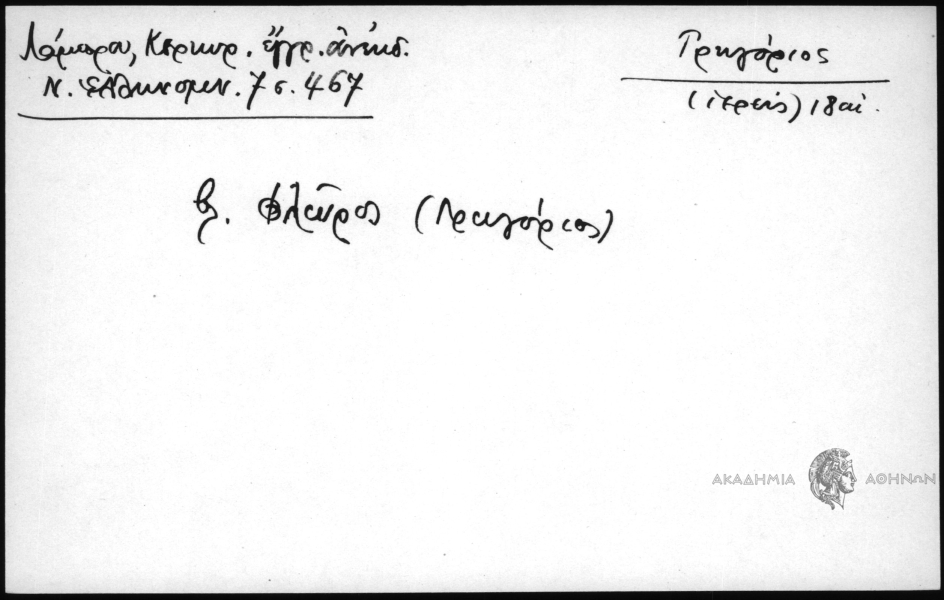 Λάμπρου, Κερκυρ. ἔγγρ. ἀνέκδ.
Ν. Ἑλληνομν. 7 σ. 467
Γρηγόριος
(ἱερεύς) 18 αἰ.
βλ. Φλῶρος (Γρηγόριος)
ΑΚΑΔΗΜΙΑ ΑΘΗΝΩΝ